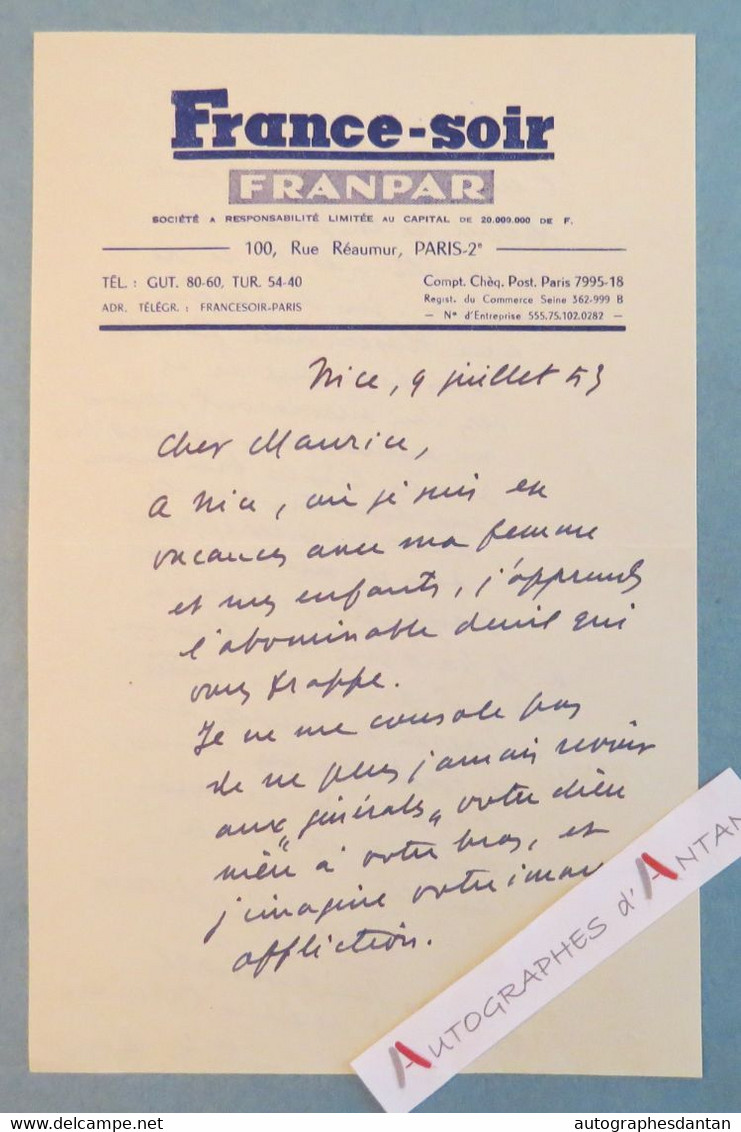 France-soir
FRANPAR
SOCIÉTÉ A RESPONSABILITÉ LIMITÉE AU CAPITAL DE 20.000.000 DE F.
100, Rue Réaumur, PARIS-2e
TÉL. : GUT. 80-60, TUR. 54-40
ADR. TÉLÉGR. : FRANCESOIR-PARIS
Compt. Chèq. Post. Paris 7995-18
Regist. du Commerce Seine 362-999 B
— No d'Entreprise 555.75.102.0282 —
Nice, 9 juillet 53
Cher Maurice,
A Nice, où je suis en
vacances avec ma femme
et mes enfants, j'apprends
l'abominable deuil qui
vous frappe.
Je ne me console pas
de ne plus jamais revoir
aux "générales" votre chère
mère à votre bras, et
j'imagine votre
affliction.
AUTOGRAPHES d'ANTAN
autographesdantan